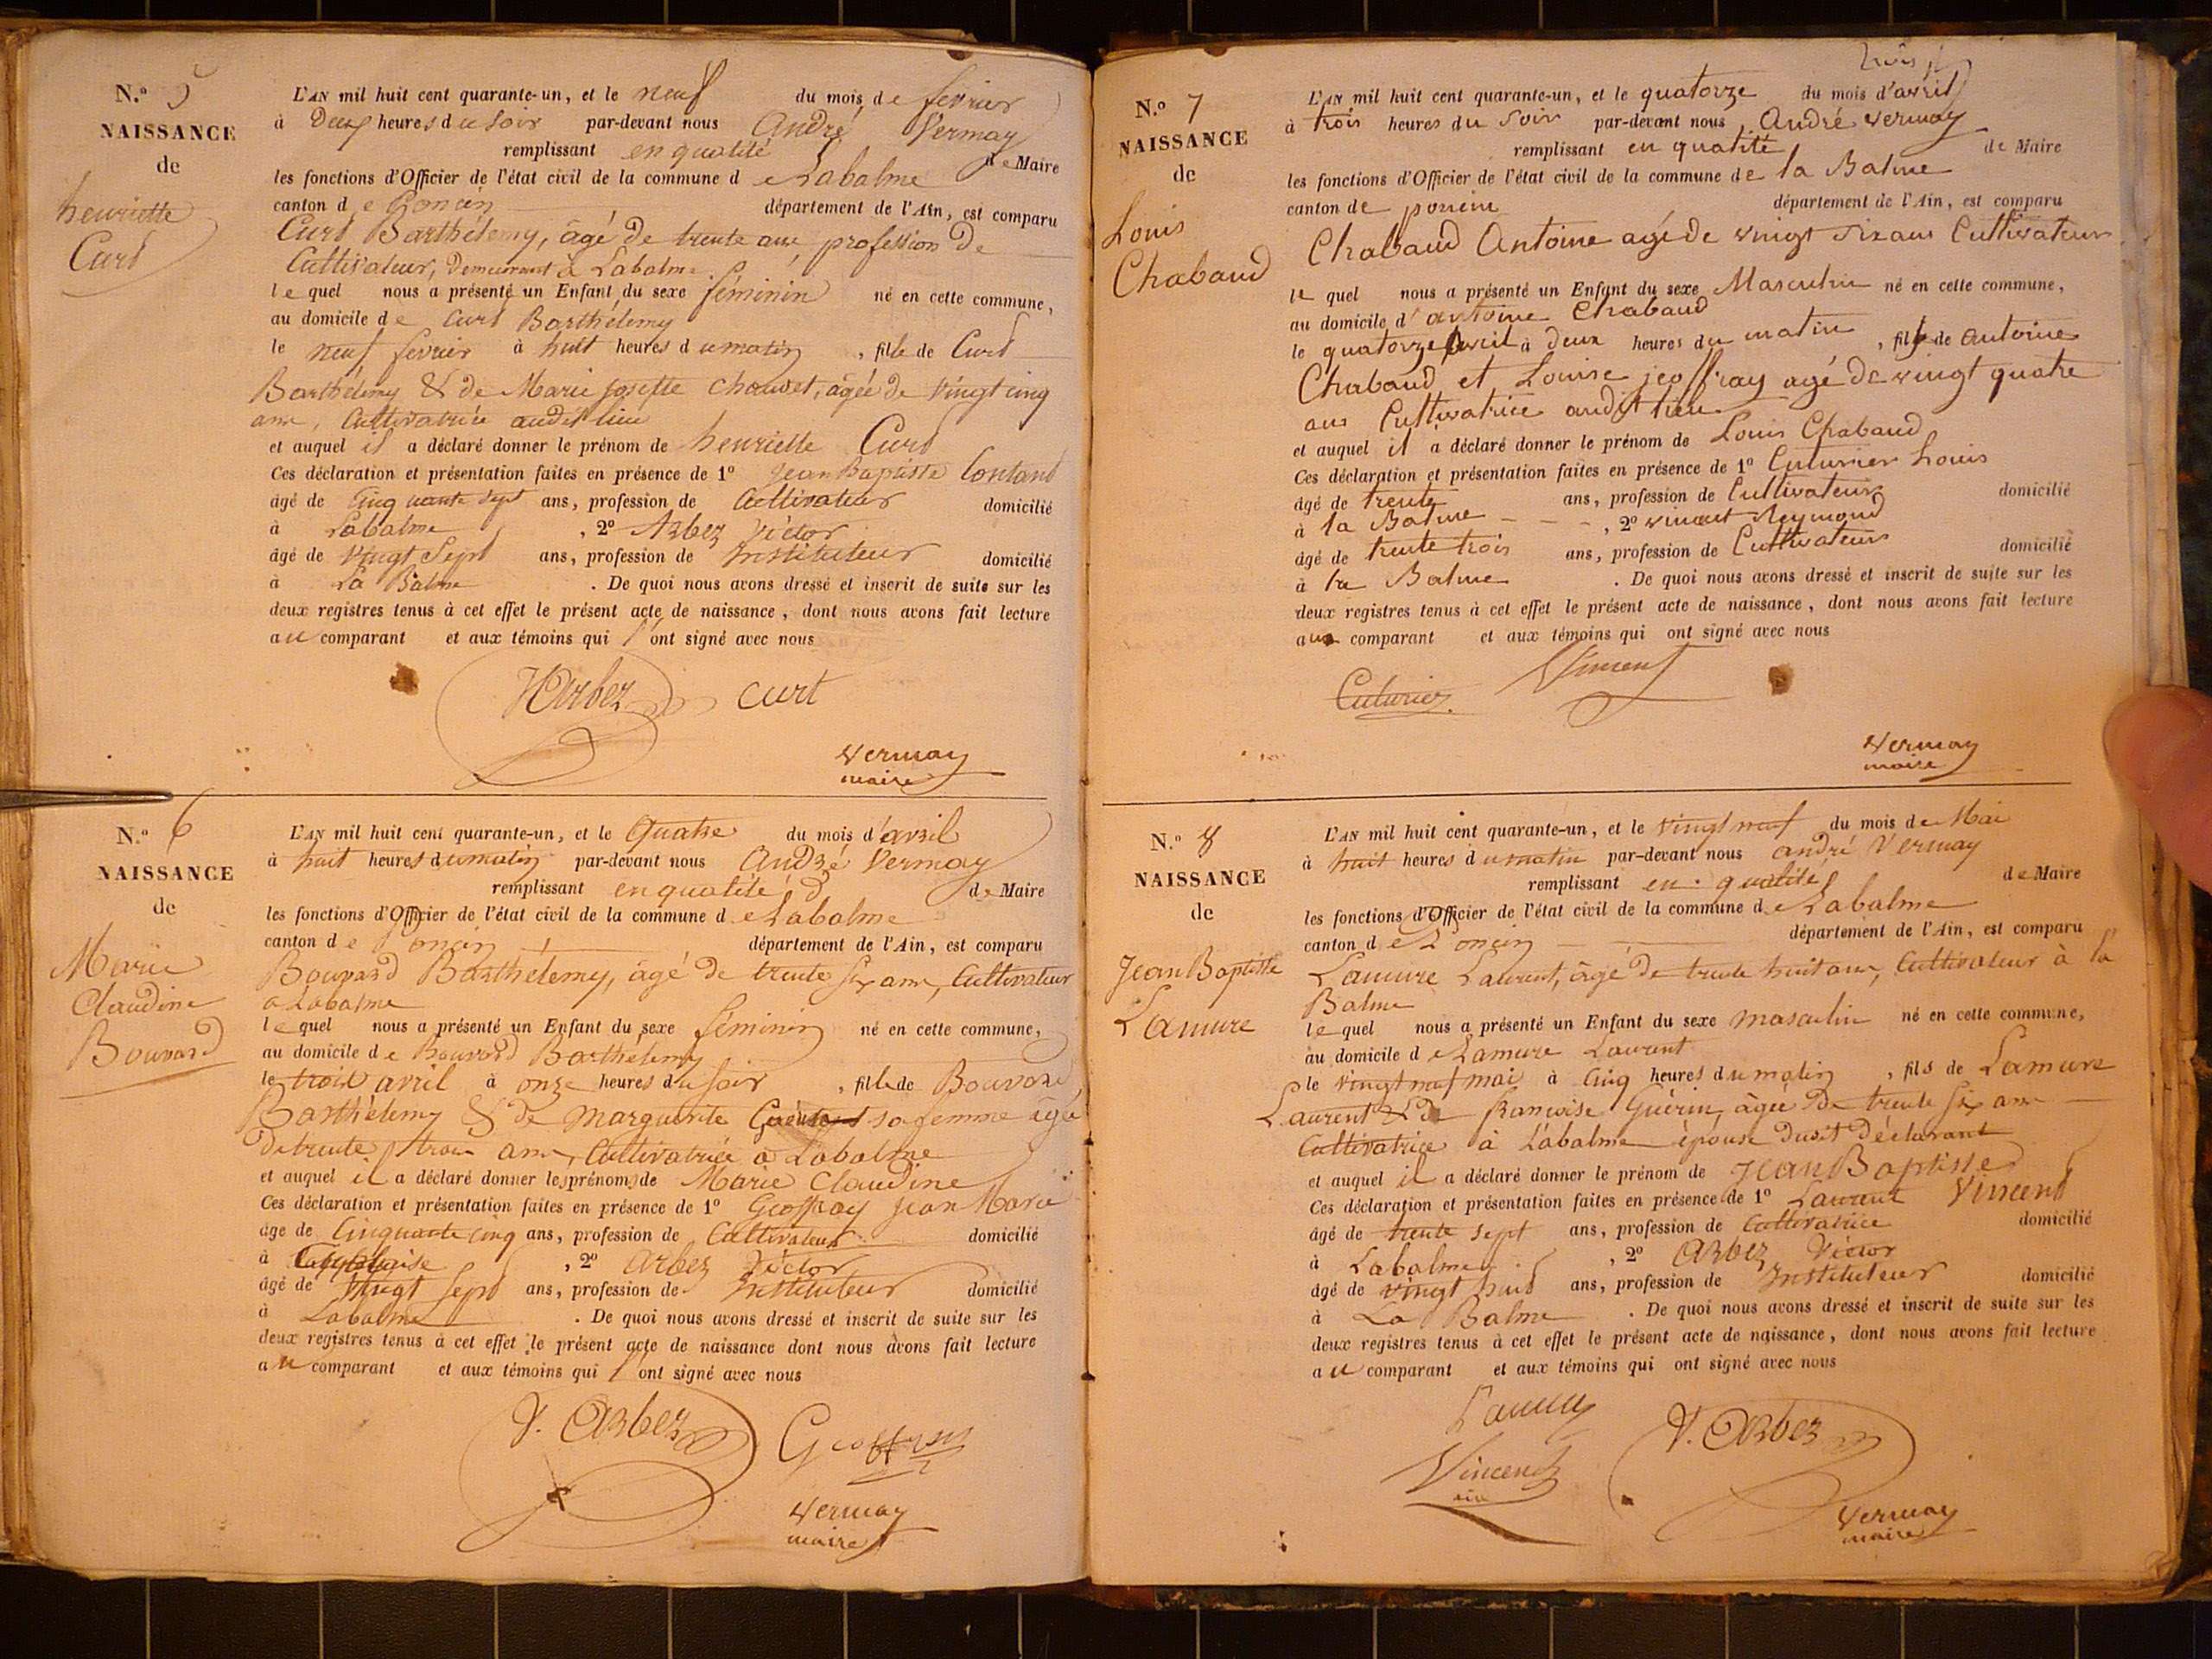 N.o 5
NAISSANCE
de
henriette
Curt
L'AN mil huit cent quarante-un, et le neuf du mois de fevrier
à Deux heures du soir par-devant nous André Vermay
remplissant en qualité de Maire
les fonctions d'Officier de l'état civil de la commune de Labalme
canton de Poncin département de l'Ain, est comparu
Curt Barthélemy, âgé de trente ans, profession de
Cultivateur, Demeurant à Labalme.
lequel nous a présenté un Enfant du sexe féminin né en cette commune,
au domicile de Curt Barthélemy
le neuf fevrier à huit heures du matin, fille de Curt
Barthélemy & de Marie josefte Chouvet, âgée de Vingt cinq
ans, Cultivatrice audit lieu
et auquel il a déclaré donner le prénom de henriette Curt
Ces déclaration et présentation faites en présence de 1o Jean Baptiste Contant
âgé de Cinquante sept ans, profession de Cultivateur domicilié
à Labalme, 2o Arbez Victor
âgé de Vingt Sept ans, profession de Instituteur domicilié
à La Balme. De quoi nous avons dressé et inscrit de suite sur les
deux registres tenus à cet effet le présent acte de naissance, dont nous avons fait lecture
au comparant et aux témoins qui l'ont signé avec nous
VArbez curt
Vermay
maire
N.o 6
NAISSANCE
de
Marie
Claudine
Bouvard
L'AN mil huit cent quarante-un, et le Quatre du mois d'avril
à huit heures du matin par-devant nous André Vermay
remplissant en qualité de Maire
les fonctions d'Officier de l'état civil de la commune de Labalme
canton de Poncin département de l'Ain, est comparu
Bouvard Barthélemy, âgé de trente six ans, Cultivateur
a Labalme
lequel nous a présenté un Enfant du sexe féminin né en cette commune,
au domicile de Bouvard Barthélemy
le trois avril à onze heures du soir, fille de Bouvard
Barthélemy & de Marguerite sa femme âgée
de trente trois ans, Cultivatrice a Labalme
et auquel il a déclaré donner les prénoms de Marie Claudine
Ces déclaration et présentation faites en présence de 1o Geoffray Jean Marie
âgé de Cinquante cinq ans, profession de Cultivateur domicilié
à, 2o Arbez Victor
âgé de Vingt Sept ans, profession de Instituteur domicilié
à Labalme. De quoi nous avons dressé et inscrit de suite sur les
deux registres tenus à cet effet le présent acte de naissance dont nous avons fait lecture
au comparant et aux témoins qui l'ont signé avec nous
V. Arbez Geoffray
Vermay
maire
trois
N.o 7
NAISSANCE
de
Louis
Chabaud
L'AN mil huit cent quarante-un, et le quatorze du mois d'avril
à trois heures du soir par-devant nous André Vermay
remplissant en qualité de Maire
les fonctions d'Officier de l'état civil de la commune de la Balme
canton de poncin département de l'Ain, est comparu
Chabaud Antoine agé de vingt six ans Cultivateur
lequel nous a présenté un Enfant du sexe Masculin né en cette commune,
au domicile d'antoine Chabaud
le quatorze avril à deux heures du matin, fils de antoine
Chabaud et Louise jeoffray agé de vingt quatre
ans Cultivatrice audit lieu
et auquel il a déclaré donner le prénom de Louis Chabaud
Ces déclaration et présentation faites en présence de 1o Cuturier Louis
âgé de trente ans, profession de Cultivateur domicilié
à la Balme - - -, 2o vincent Reymond
âgé de trente trois ans, profession de Cultivateur domicilié
à la Balme. De quoi nous avons dressé et inscrit de suite sur les
deux registres tenus à cet effet le présent acte de naissance, dont nous avons fait lecture
au comparant et aux témoins qui ont signé avec nous
Cuturier Vincent
Vermay
maire
N.o 8
NAISSANCE
de
Jean Baptiste
Lamure
L'AN mil huit cent quarante-un, et le vingt neuf du mois de Mai
à huit heures du matin par-devant nous andré Vermay
remplissant en qualité de Maire
les fonctions d'Officier de l'état civil de la commune de Labalme
canton de Poncin département de l'Ain, est comparu
Lamure Laurent, âgé de trente huit ans, Cultivateur à la
Balme
lequel nous a présenté un Enfant du sexe masculin né en cette commune,
au domicile de Lamure Laurent
le vingt neuf mai à Cinq heures du matin, fils de Lamure
Laurent & de francoise Guérin, âgée de trente six ans
Cultivatrice à Labalme épouse dudit déclarant
et auquel il a déclaré donner le prénom de Jean Baptiste
Ces déclaration et présentation faites en présence de 1o Laurent Vincent
âgé de trente sept ans, profession de Cultivatrice domicilié
à Labalme, 2o Arbez Victor
âgé de vingt huit ans, profession de Instituteur domicilié
à La Balme. De quoi nous avons dressé et inscrit de suite sur les
deux registres tenus à cet effet le présent acte de naissance, dont nous avons fait lecture
au comparant et aux témoins qui ont signé avec nous
V. Arbez
Vincent
Vermay
maire